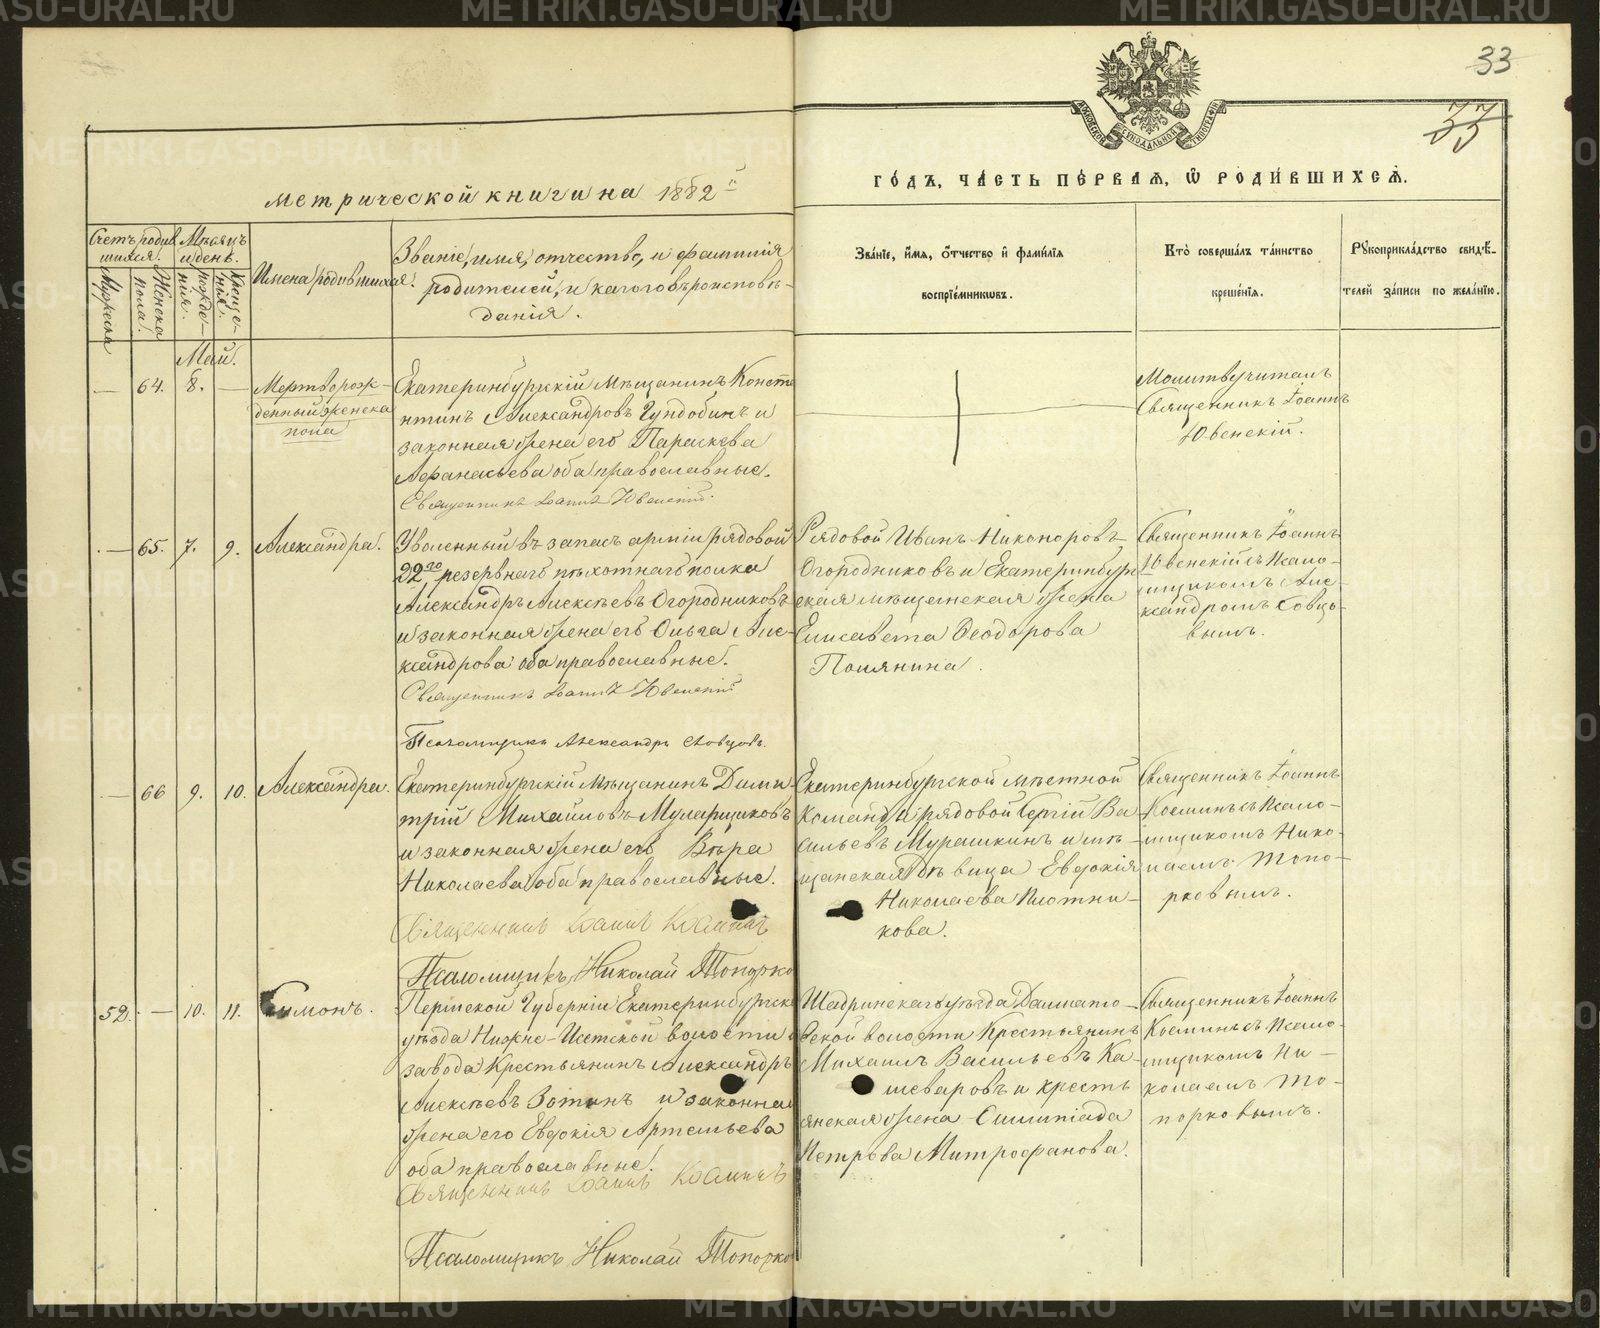 METRIKI.GASO-URAL.RU
33
33
МОСКОВСКОЙ СѴНОДАЛЬНОЙ ТИПОГРАФІИ
метрической книги на 1882 й
го́дъ, ча́сть пе́рваѧ, ѡ҆ роди́вшихсѧ.
Счетъ родив
шихся.
Мужеска
Женска
пола.
Мѣсяцъ
и день.
рожде-
нія.
креще-
нія.
Имена родившихся.
Званіе, имя, отчество, и фамилія
родителей, и какого вѣроисповѣ-
данія.
Зва́нїе, и҆́мѧ, ѻ҆́тчество и҆ фами́лїѧ
воспрїе́мникѡвъ.
Кто̀ соверша́лъ та́инство
креще́нїѧ.
Рꙋкоприкла́дство свидѣ́-
телей за́писи по жела́нїю.
Май.
— 64. 8. —
Мертворож-
денный женска
пола
Екатеринбургскій Мѣщанинъ Конста
нтинъ Александровъ Гундобинъ и
законная жена его Параскева
Афанасьева оба православные.
Священникъ Іоаннъ Ювенскій.
Молитву читалъ
Священникъ Іоаннъ
Ювенскій.
— 65. 7. 9.
Александра.
Уволенный въ запасъ арміи рядовой
22го резервнаго пѣхотнаго полка
Александръ Алексѣевъ Огородниковъ
и законная жена его Ольга Але-
ксандрова оба православные.
Священникъ Іоаннъ Ювенскій
Псаломщикъ Александръ Словцовъ.
Рядовой Иванъ Никоноровъ
Огородниковъ и Екатеринбург
ская мѣщанская жена
Елисавета Ѳеодорова
Полянина.
Священникъ Іоаннъ
Ювенскій съ Псало-
мщикомъ Але-
ксандромъ Словцо-
вымъ.
— 66 9. 10.
Александра.
Екатеринбургскій Мѣщанинъ Дими
трій Михайловъ Муларщиковъ
и законная жена его Вѣра
Николаева оба православные.
Священникъ Іоаннъ Косминъ
Псаломщикъ Николай Топорко
Екатеринбургской мѣстной
команды рядовой Сергій Ва
сильевъ Мурашкинъ и мѣ-
щанская дѣвица Евдокія
Николаева Плотни-
кова.
Священникъ Іоаннъ
Косминъ съ Псало-
мщикомъ Нико-
лаемъ Топо-
рковымъ.
52. — 10. 11.
Симонъ.
Пермской Губерніи Екатеринбургска
уѣзда Нижне-Исетской волости и
завода Крестьянинъ Александръ
Алексѣевъ Зотинъ и законная
жена его Евдокія Артемьева
оба православные.
Священникъ Іоаннъ Косминъ
Псаломщикъ Николай Топорко
Шадринскаго уѣзда Далмато-
вской волости Крестьянинъ
Михаилъ Васильевъ Ка-
шеваровъ и кресть
янская жена Олимпіада
Петрова Митрофанова.
Священникъ Іоаннъ
Косминъ съ Псало-
мщикомъ Ни-
колаемъ То-
порковымъ.